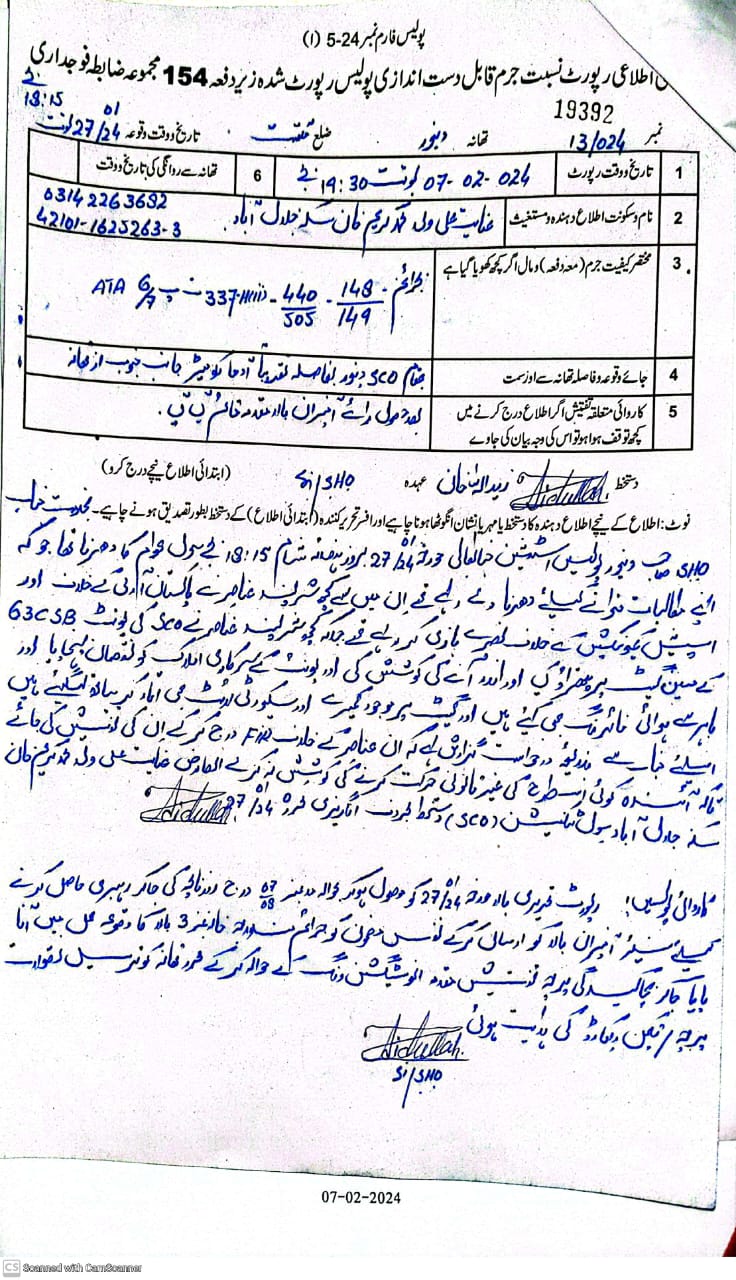 پولیس فارم نمبر 24-5 (۱)
اطلاعی رپورٹ نسبت جرم قابل دست اندازی پولیس رپورٹ شدہ زیر دفعہ 154 مجموعہ ضابطہ فوجداری
19392
نمبر 13/024 تھانہ دنیور ضلع گلگت تاریخ و وقت وقوعہ 27/01/24 بوقت 18:15 بجے
1 تاریخ و وقت رپورٹ 07-02-024 بوقت 19:30 بجے
6 تھانہ سے روانگی کی تاریخ و وقت
2 نام و سکونت اطلاع دہندہ و مستغیث عنایت علی ولد محمد کریم خان سکنہ جلال آباد
03142263692
42101-1625263-3
3 مختصر کیفیت جرم (معہ دفعہ) و مال اگر کچھ کھویا گیا ہے
بجرائم - 148/149 - 440/505 - 337 ت پ 6/7 ATA
4 جائے وقوعہ و فاصلہ تھانہ سے اور سمت بمقام SCO دنیور بفاصلہ تقریباً آدھا کلومیٹر جانب جنوب از تھانہ
5 کاروائی متعلقہ تفتیش اگر اطلاع درج کرنے میں کچھ توقف ہوا ہو تو اس کی وجہ بیان کی جاوے
بعد حصول رائے آفیسران بالا مقدمہ قائم
دستخط زیداللہ خان عہدہ SI/SHO (ابتدائی اطلاع نیچے درج کرو)
نوٹ: اطلاع کے نیچے اطلاع دہندہ کا دستخط یا مہر یا نشان انگوٹھا ہونا چاہیے اور افسر تحریر کنندہ (ابتدائی اطلاع) کے دستخط بطور تصدیق ہونے چاہیے۔ بخدمت جناب
SHO صاحب دنیور پولیس اسٹیشن جناب عالی مورخہ 27/01/24 بروز ہفتہ شام 18:15 بجے سول عوام کا دھرنا تھا جو کہ
اپنے مطالبات منوانے کیلئے دھرنا دے رہے تھے ان میں سے کچھ شرپسند عناصر نے پاکستان آرمی کے خلاف اور
اسپیشل کمیونیکیشن کے خلاف نعرے بازی کر رہے تھے جبکہ کچھ شرپسند عناصر نے SCO کی یونٹ 63CSB
کے مین گیٹ پر پتھراؤ کیا اور اندر آنے کی کوشش کی اور یونٹ کے سرکاری املاک کو نقصان پہنچایا اور
باہر سے ہوائی فائرنگ بھی کیئے ہیں اور گیٹ پر موجود کیمرے اور سیکورٹی لائٹ بھی اتار کر ساتھ لیگئے ہیں
اسلئے جناب سے درخواست گزارش ہے کہ ان عناصر کے خلاف FIR درج کر کے ان کی تفتیش کی جائے
تاکہ آئندہ کوئی اسطرح کی غیر قانونی حرکت کرنے کی کوشش نہ کرے العارض عنایت علی ولد محمد کریم خان
سکنہ جلال آباد (SCO) دستخط بحروف انگریزی مورخہ 27/01/24
کاروائی پولیس: رپورٹ تحریری بالا مورخہ 27/01/24 کو وصول ہو کر بحوالہ مد نمبر 07/08 درج روزنامچہ کی جا کر رہبری حاصل کرنے
کیلئے سینئر آفیسران بالا کو ارسال کر کے جرائم مندرجہ خانہ نمبر 3 بالا کا وقوعہ عمل میں آنا
پایا جا کر پرچہ تفتیش مقدمہ انوسٹیگیشن ونگ کے حوالہ کر کے محرر تھانہ کو ترسیل نقولات
پرچہ / تکمیل ریکارڈ کی ہدایت ہوئی
SI/SHO
07-02-2024
CS Scanned with CamScanner